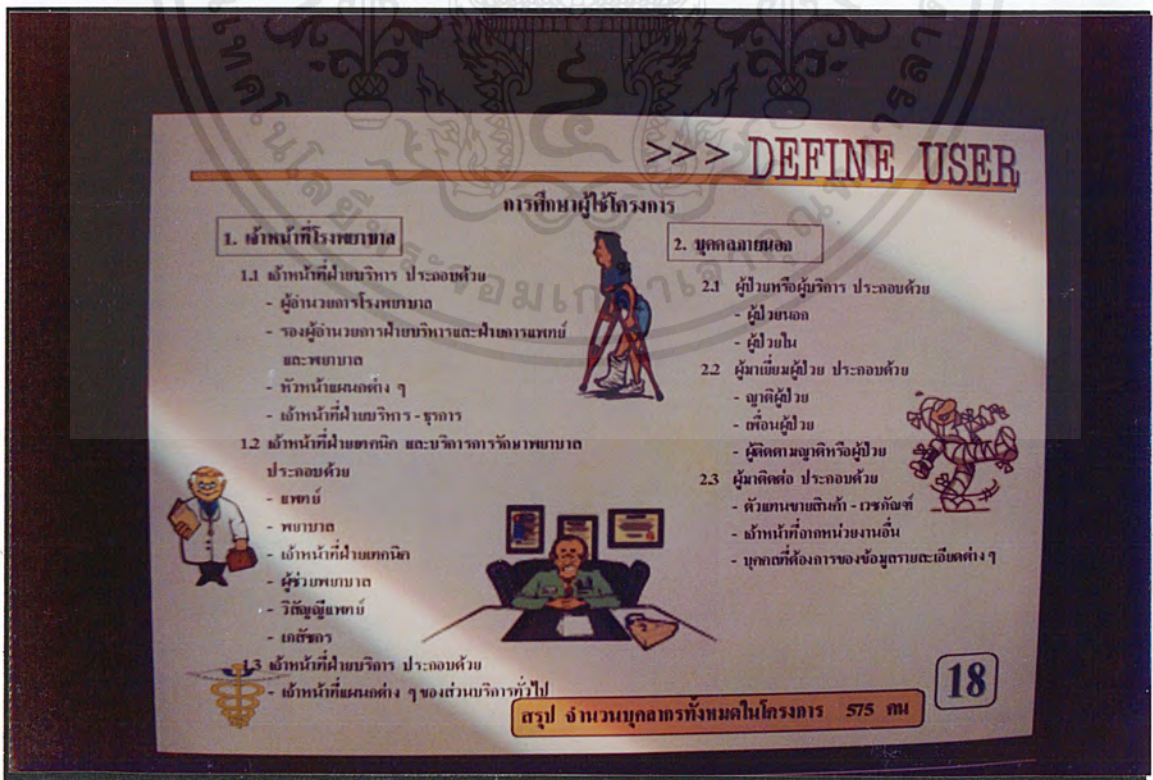 >>> DEFINE USER
การศึกษาผู้ใช้โครงการ
1. เจ้าหน้าที่โรงพยาบาล
1.1 เจ้าหน้าที่ฝ่ายบริหาร ประกอบด้วย
- ผู้อำนวยการโรงพยาบาล
- รองผู้อำนวยการฝ่ายบริหารและฝ่ายการแพทย์
และพยาบาล
- หัวหน้าแผนกต่าง ๆ
- เจ้าหน้าที่ฝ่ายบริหาร - ธุรการ
1.2 เจ้าหน้าที่ฝ่ายเทคนิค และบริการการรักษาพยาบาล
ประกอบด้วย
- แพทย์
- พยาบาล
- เจ้าหน้าที่ฝ่ายเทคนิค
- ผู้ช่วยพยาบาล
- วิสัญญีแพทย์
- เภสัชกร
1.3 เจ้าหน้าที่ฝ่ายบริการ ประกอบด้วย
- เจ้าหน้าที่แผนกต่าง ๆ ของส่วนบริการทั่วไป
2. บุคคลภายนอก
2.1 ผู้ป่วยหรือผู้บริการ ประกอบด้วย
- ผู้ป่วยนอก
- ผู้ป่วยใน
2.2 ผู้มาเยี่ยมผู้ป่วย ประกอบด้วย
- ญาติผู้ป่วย
- เพื่อนผู้ป่วย
- ผู้ติดตามญาติหรือผู้ป่วย
2.3 ผู้มาติดต่อ ประกอบด้วย
- ตัวแทนขายสินค้า - เวชภัณฑ์
- เจ้าหน้าที่จากหน่วยงานอื่น
- บุคคลที่ต้องการของข้อมูลรายละเอียดต่าง ๆ
18
สรุป จำนวนบุคลากรทั้งหมดในโครงการ 575 คน